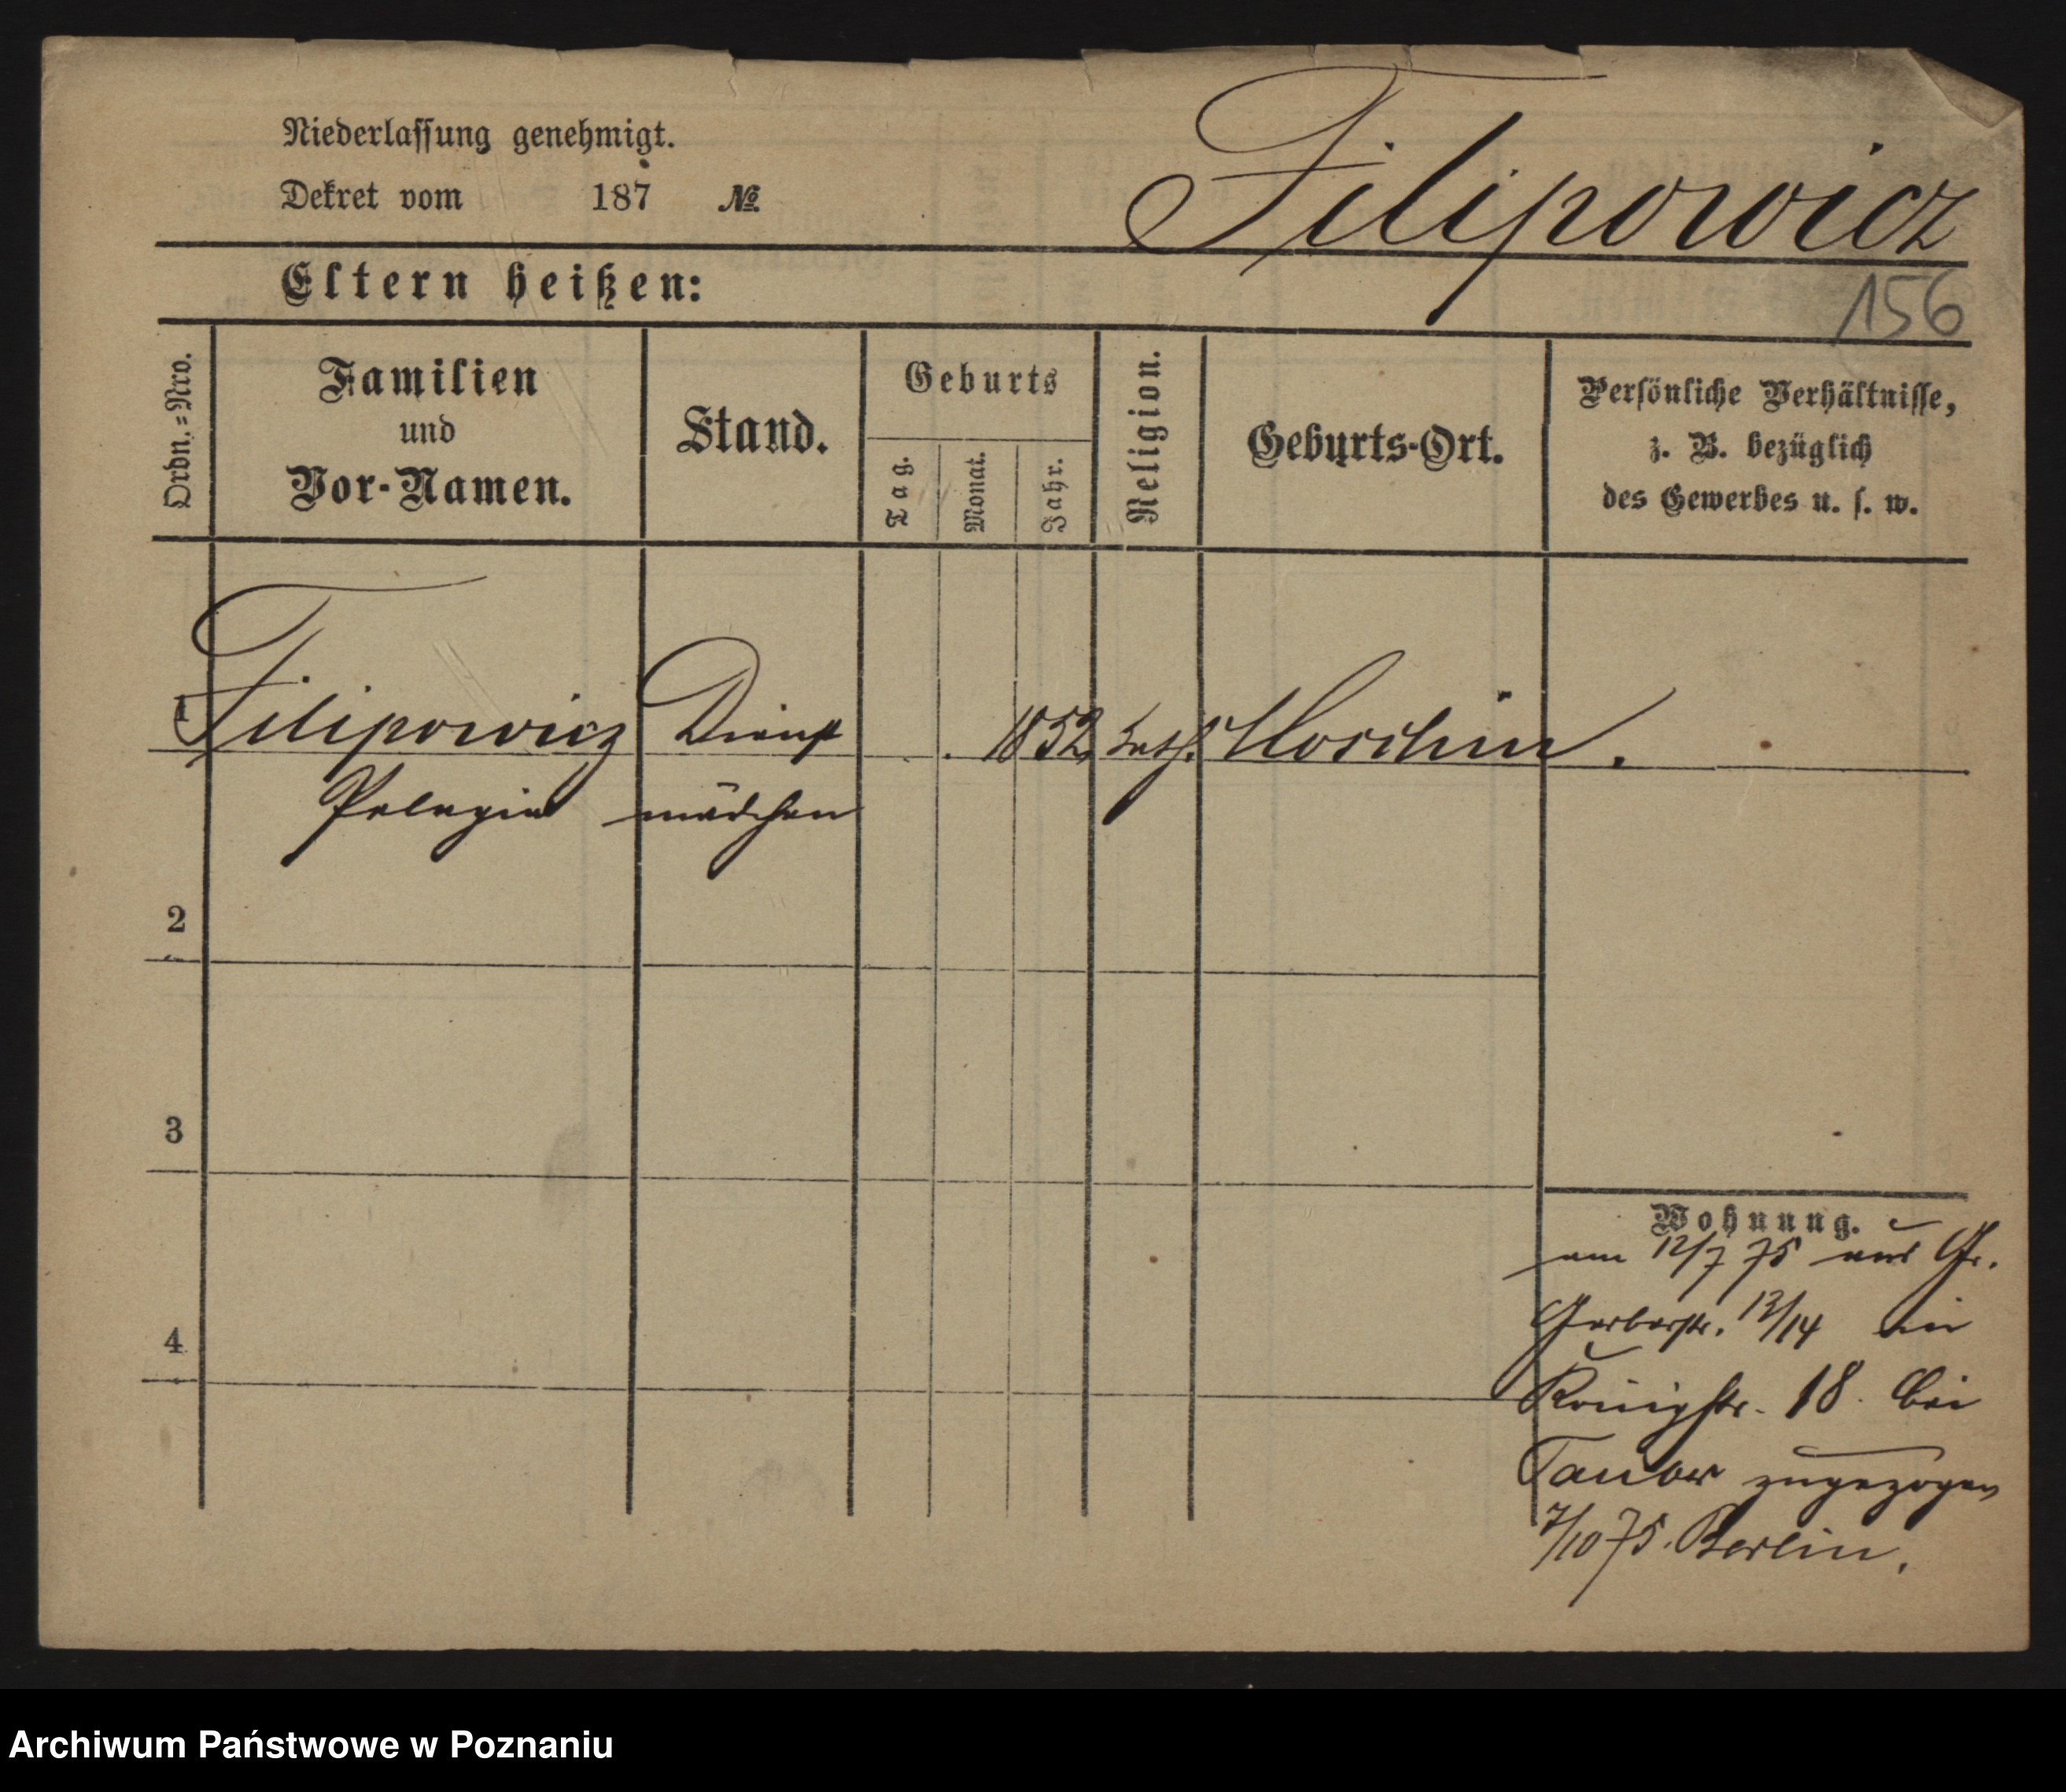 Niederlassung genehmigt.
Dekret vom 187 №
Filipowicz
Eltern heißen:
156
Ordn.=Nro.
Familien
und
Vor-Namen.
Stand.
Geburts
Tag.
Monat.
Jahr.
Religion.
Geburts-Ort.
Persönliche Verhältnisse,
z. B. bezüglich
des Gewerbes u. s. w.
1 Filipowicz Dienst 1852 kath. Moschin.
Pelagia mädchen
2
3
4
Wohnung.
am 12/7 75 aus Gr.
Gerberstr. 13/14 in
Königstr. 18. bei
Tauber zugezogen
7/10 75. Berlin.
Archiwum Państwowe w Poznaniu